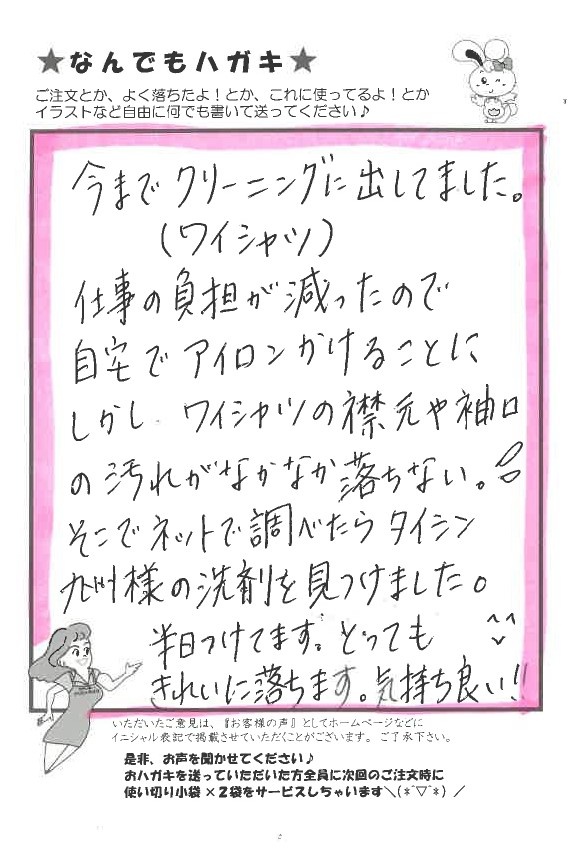 ★なんでもハガキ★
ご注文とか、よく落ちたよ！とか、これに使ってるよ！とか
イラストなど自由に何でも書いて送ってください♪
今までクリーニングに出してました。
（ワイシャツ）
仕事の負担が減ったので
自宅でアイロンかけることに
しかし、ワイシャツの襟元や袖口
の汚れがなかなか落ちない。
そこでネットで調べたらタイシン
九州様の洗剤を見つけました。
半日つけてます。とっても
きれいに落ちます。気持ち良い!!
いただいたご意見は、『お客様の声』としてホームページなどに
イニシャル表記で掲載させていただくことがございます。ご了承下さい。
是非、お声を聞かせてください♪
おハガキを送っていただいた方全員に次回のご注文時に
使い切り小袋×２袋をサービスしちゃいます＼(*´▽`*)／